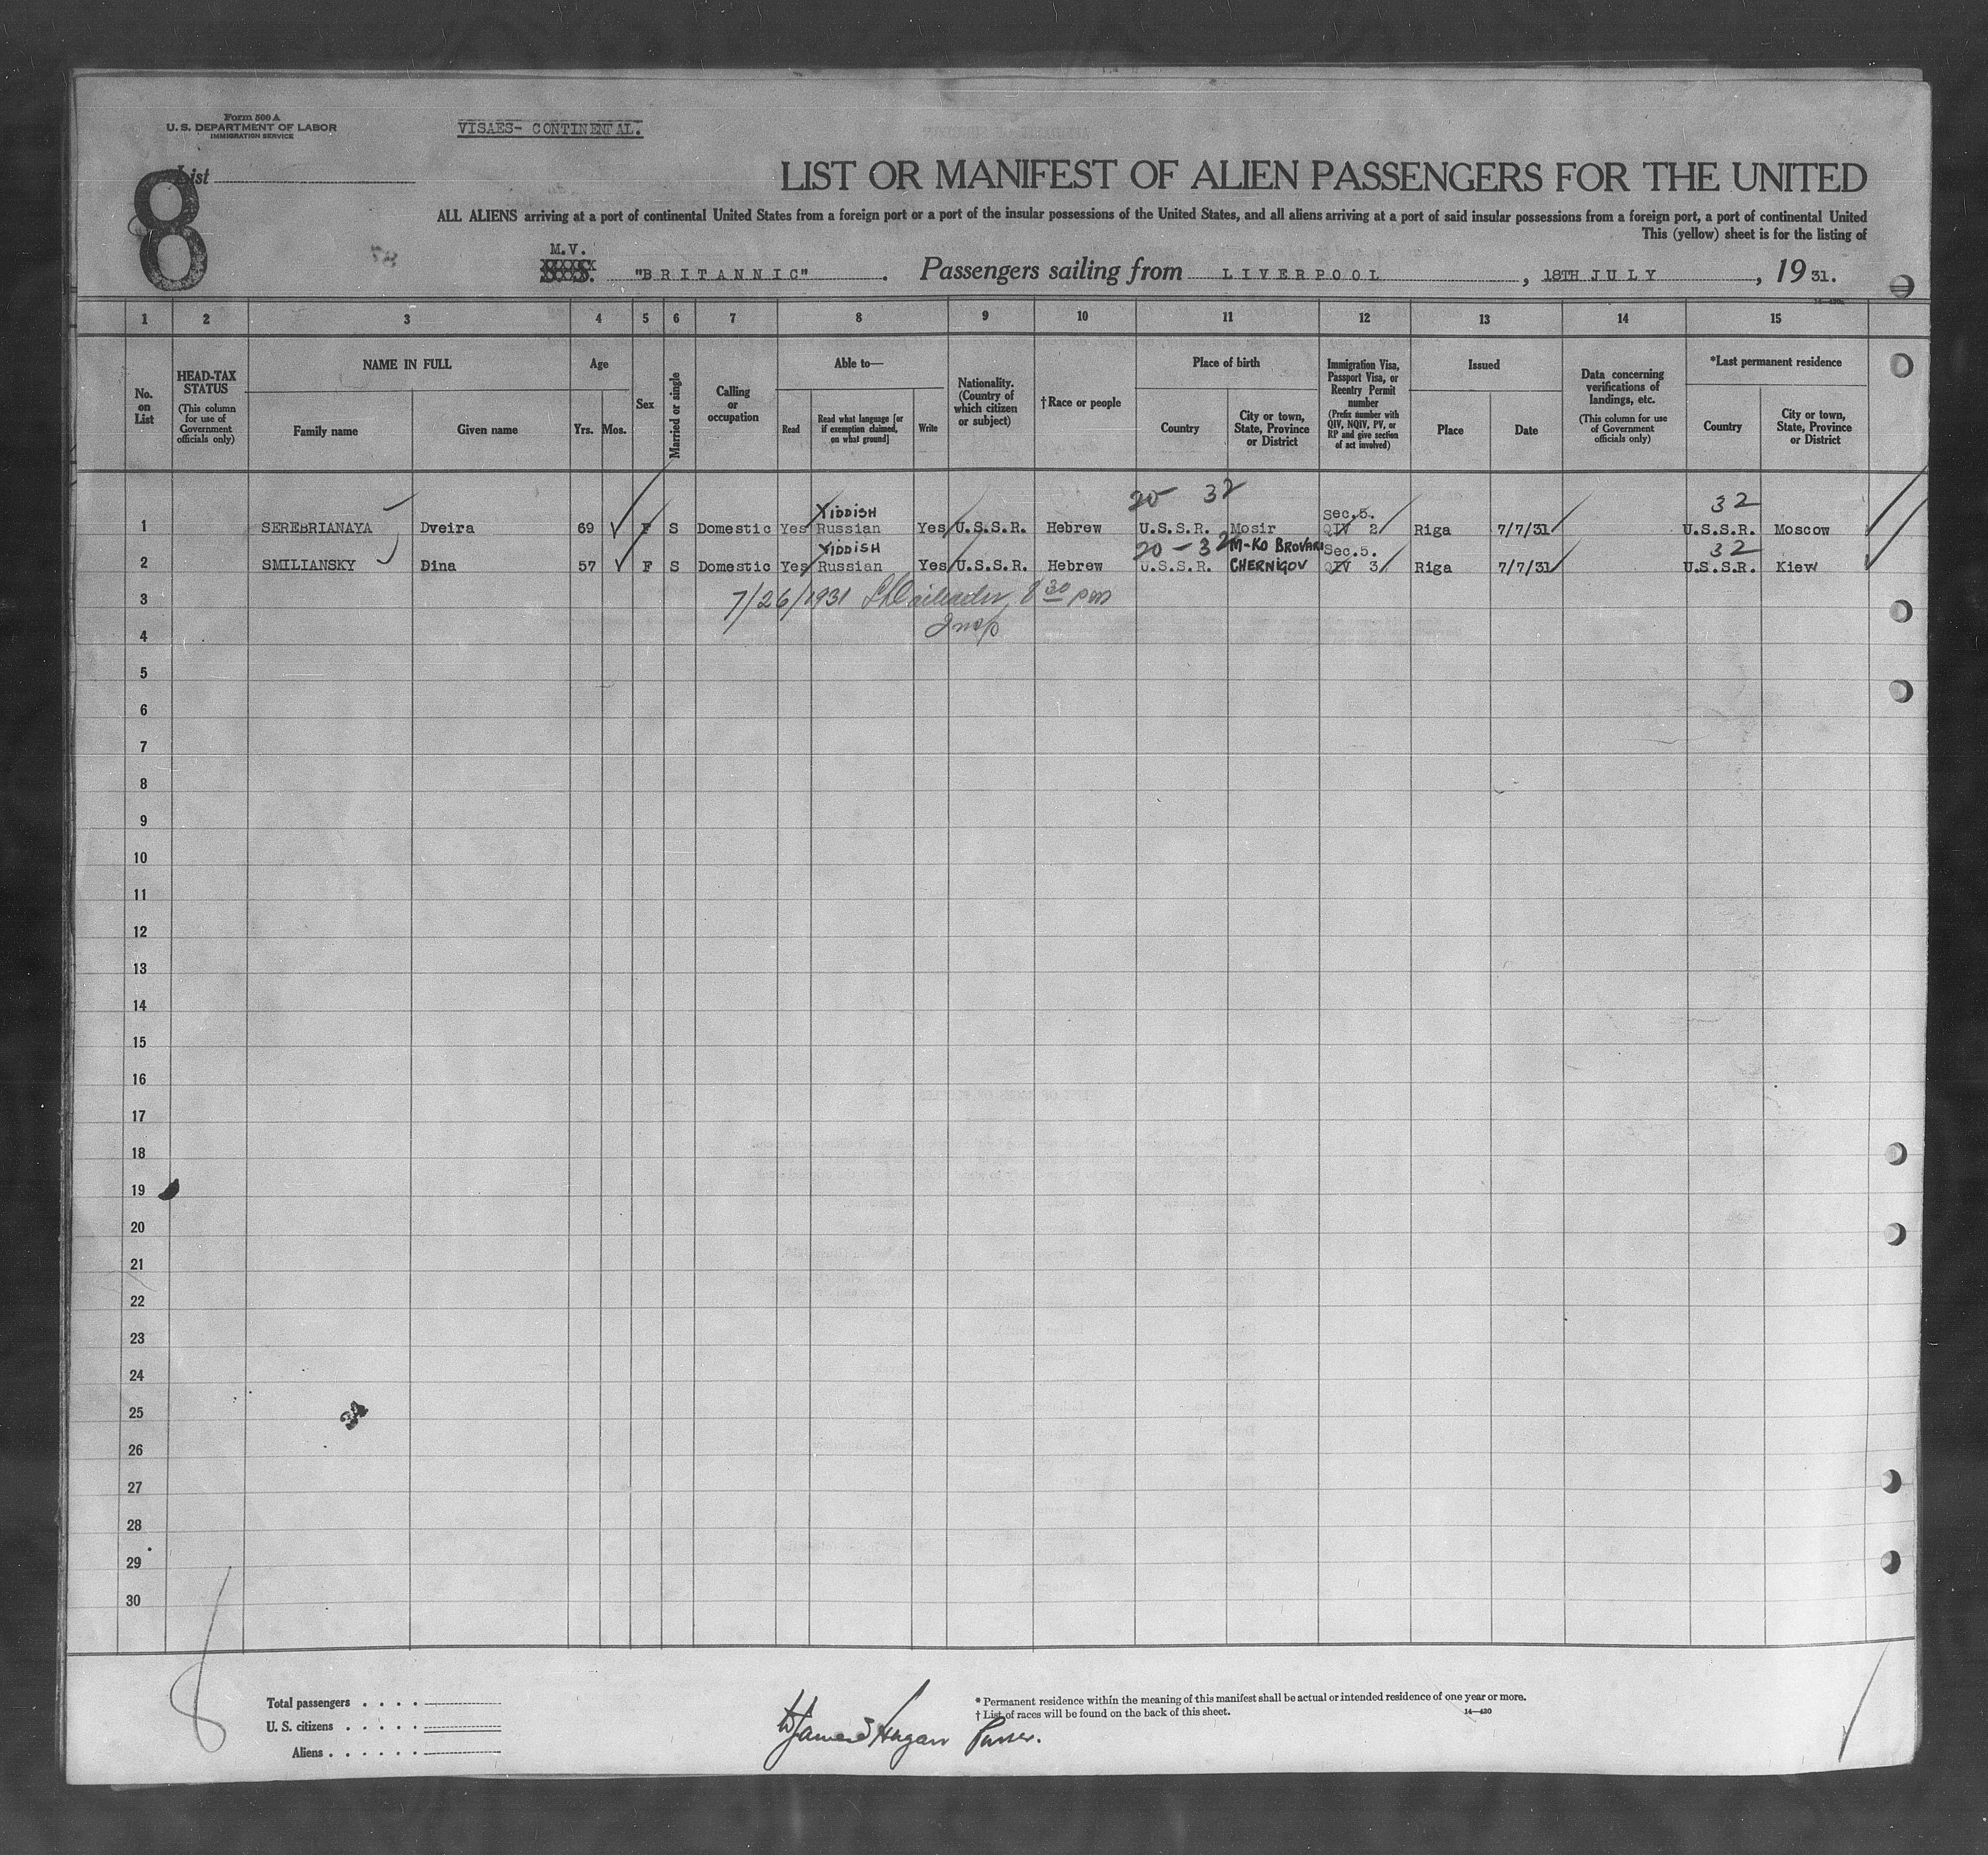 Form 500 A
U. S. DEPARTMENT OF LABOR
IMMIGRATION SERVICE
VISAES- CONTINENTAL.
List
8
LIST OR MANIFEST OF ALIEN PASSENGERS FOR THE UNITED
ALL ALIENS arriving at a port of continental United States from a foreign port or a port of the insular possessions of the United States, and all aliens arriving at a port of said insular possessions from a foreign port, a port of continental United
This (yellow) sheet is for the listing of
M.V.
S. S. "BRITANNIC" . Passengers sailing from LIVERPOOL , 18TH JULY , 19 31.
1 2 3 4 5 6 7 8 9 10 11 12 13 14 15
No. on List
HEAD-TAX STATUS
(This column for use of Government officials only)
NAME IN FULL
Family name
Given name
Age
Yrs. Mos.
Sex
Married or single
Calling or occupation
Able to—
Read
Read what language [or if exemption claimed, on what ground]
Write
Nationality. (Country of which citizen or subject)
†Race or people
Place of birth
Country
City or town, State, Province or District
Immigration Visa, Passport Visa, or Reentry Permit number
(Prefix number with QIV, NQIV, PV, or RP and give section of act involved)
Issued
Place
Date
Data concerning verifications of landings, etc.
(This column for use of Government officials only)
*Last permanent residence
Country
City or town, State, Province or District
20 32 32
YIDDISH Sec.5.
1 SEREBRIANAYA Dveira 69 F S Domestic Yes Russian Yes U.S.S.R. Hebrew U.S.S.R. Mosir QIV 2 Riga 7/7/31 U.S.S.R. Moscow
YIDDISH 20 - 32 M-KO BROVARI Sec.5. 32
2 SMILIANSKY Dina 57 F S Domestic Yes Russian Yes U.S.S.R. Hebrew U.S.S.R. CHERNIGOV QIV 3 Riga 7/7/31 U.S.S.R. Kiew
3 7/26/1931 8 30 pm
Insp
4
5
6
7
8
9
10
11
12
13
14
15
16
17
18
19
20
21
22
23
24
25
26
27
28
29
30
8
Total passengers
U. S. citizens
Aliens
Purser.
* Permanent residence within the meaning of this manifest shall be actual or intended residence of one year or more.
† List of races will be found on the back of this sheet.
14—420